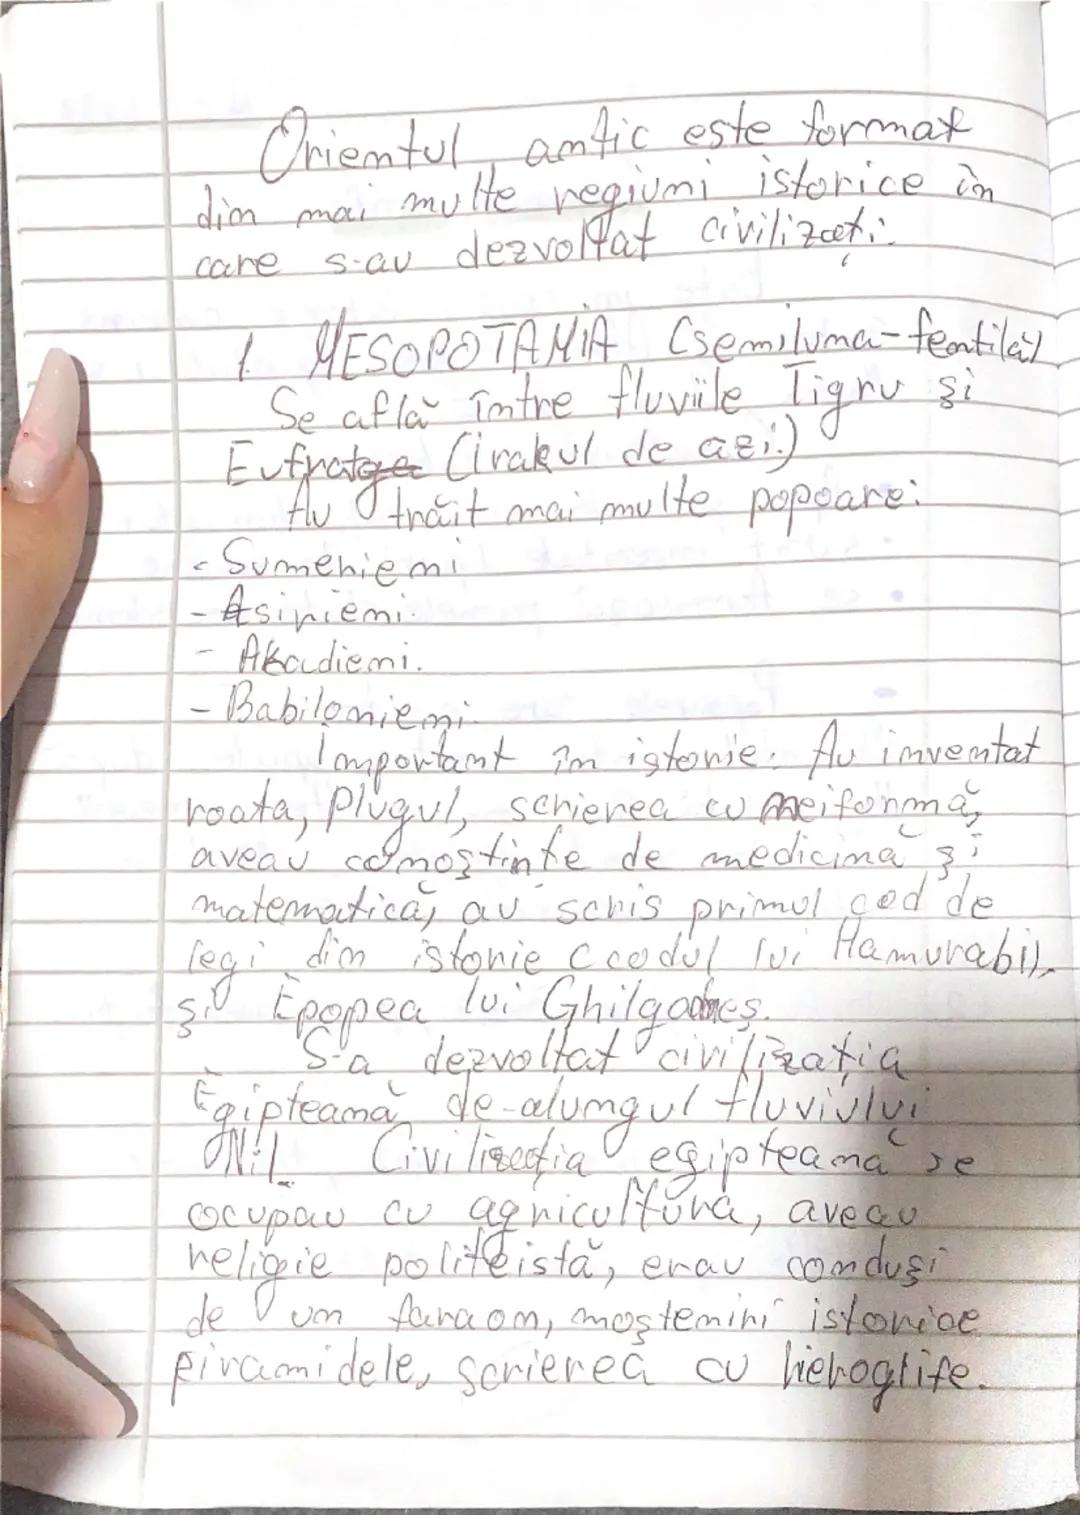 Orientul antic este format
din mai multe regiuni istorice în
care s-au dezvoltat civilizați.
1. MESOPOTAMIA (semiluna-fertilă)
Se află între fluviile Tigru și
Eufrat (irakul de azi.)
Au trăit mai multe popoare:
- Sumerieni
- Asirieni.
- Akadieni.
- Babilonieni.
Important în istorie: Au inventat
roata, plugul, scrierea cu neiformă,
aveau conoștințe de medicină și
matematică, au scris primul cod de
legi din istorie (codul lui Hamurabi),
și Epopea lui Ghilgameș.
S-a dezvoltat civilizația
Egipteană de-alungul fluviului
Nil. Civilizația egipteană se
ocupau cu agricultura, aveau
religie politeistă, erau conduși
de un faraon, moșteniri istorice
piramidele, scrierea cu hieroglife.